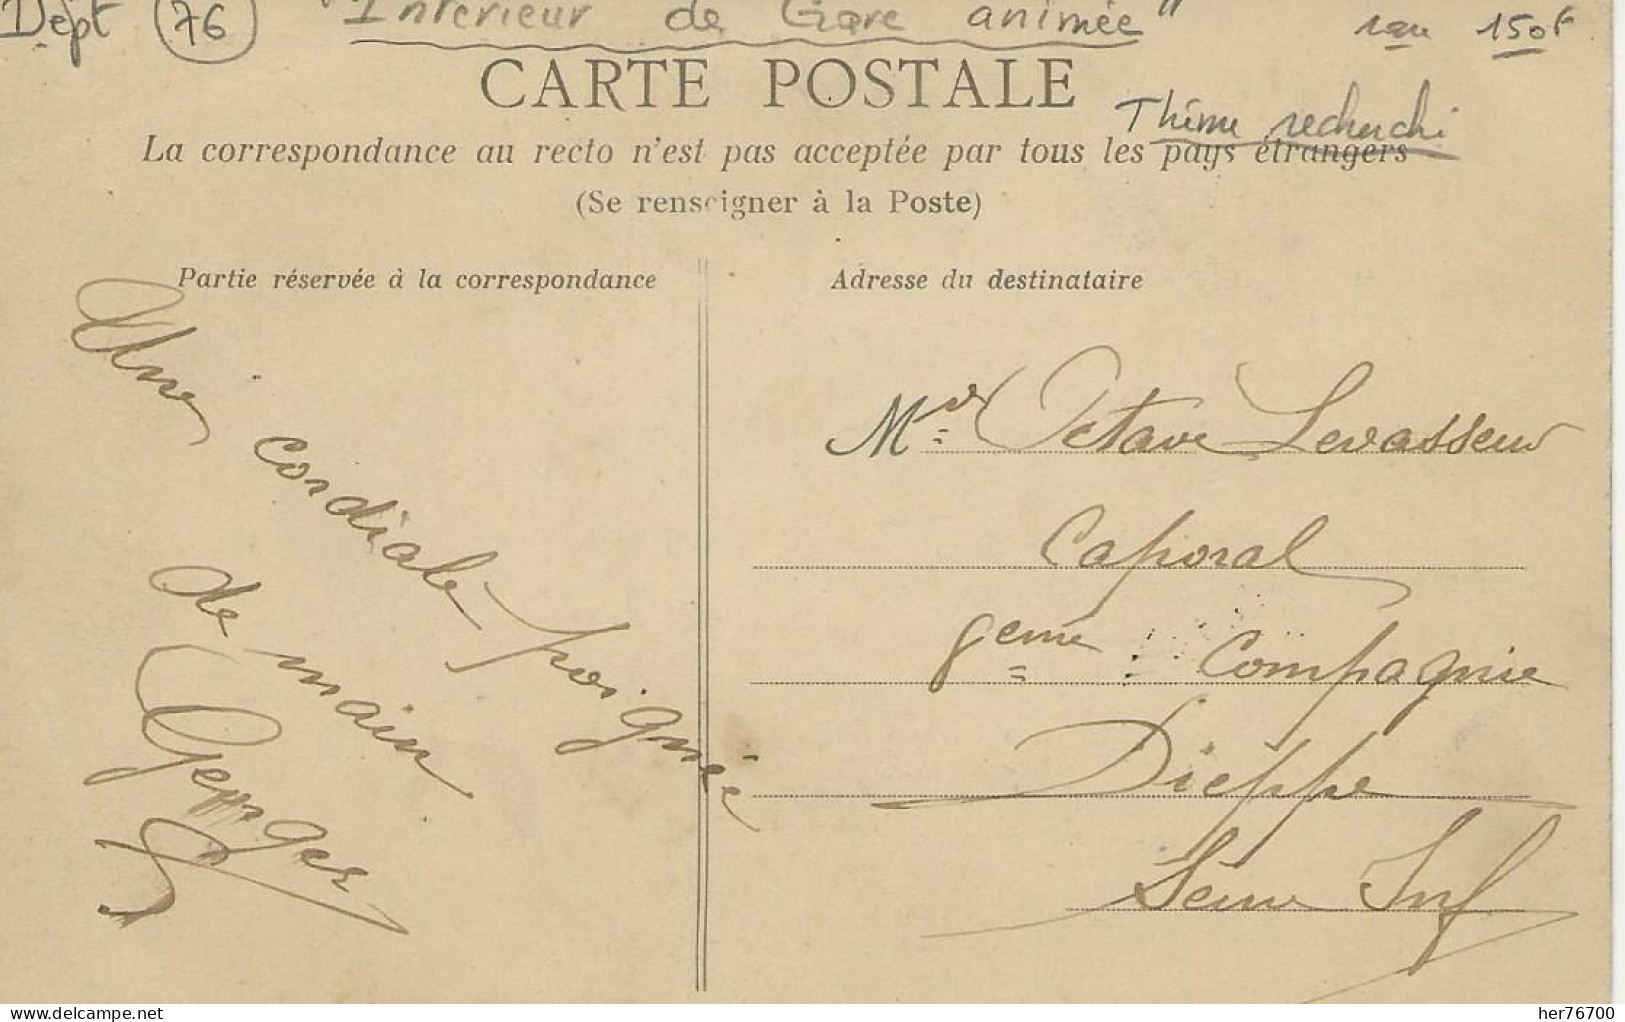 Dépt 76 "Intérieur de Gare animée" rare 150f
CARTE POSTALE
Thème recherché
La correspondance au recto n'est pas acceptée par tous les pays étrangers
(Se renseigner à la Poste)
Partie réservée à la correspondance
Adresse du destinataire
Une cordiale poignée
de main
Georges
Mr Octave Levasseur
Caporal
8eme Compagnie
Dieppe
Seine Inf
delcampe.net
her76700